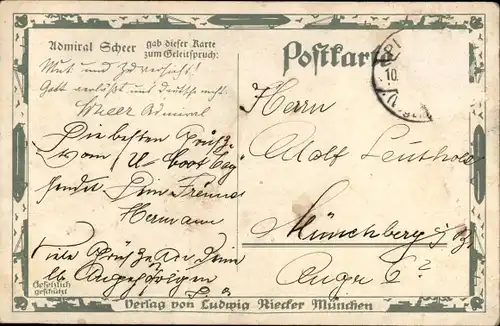 Admiral Scheer gab dieser Karte
zum Geleitspruch:
Mut und Zuversicht!
Gott verläßt uns Deutsche nicht.
Scheer Admiral
Postkarte
Die besten Grüße
vom U-boot tag
sendet Dein Freund
Hermann
Viele Grüße an Deine
lb. Angehörigen
Herrn
Adolf Leuthold
Münchberg i/B
10.
Gesetzlich
geschützt
Verlag von Ludwig Riecker München